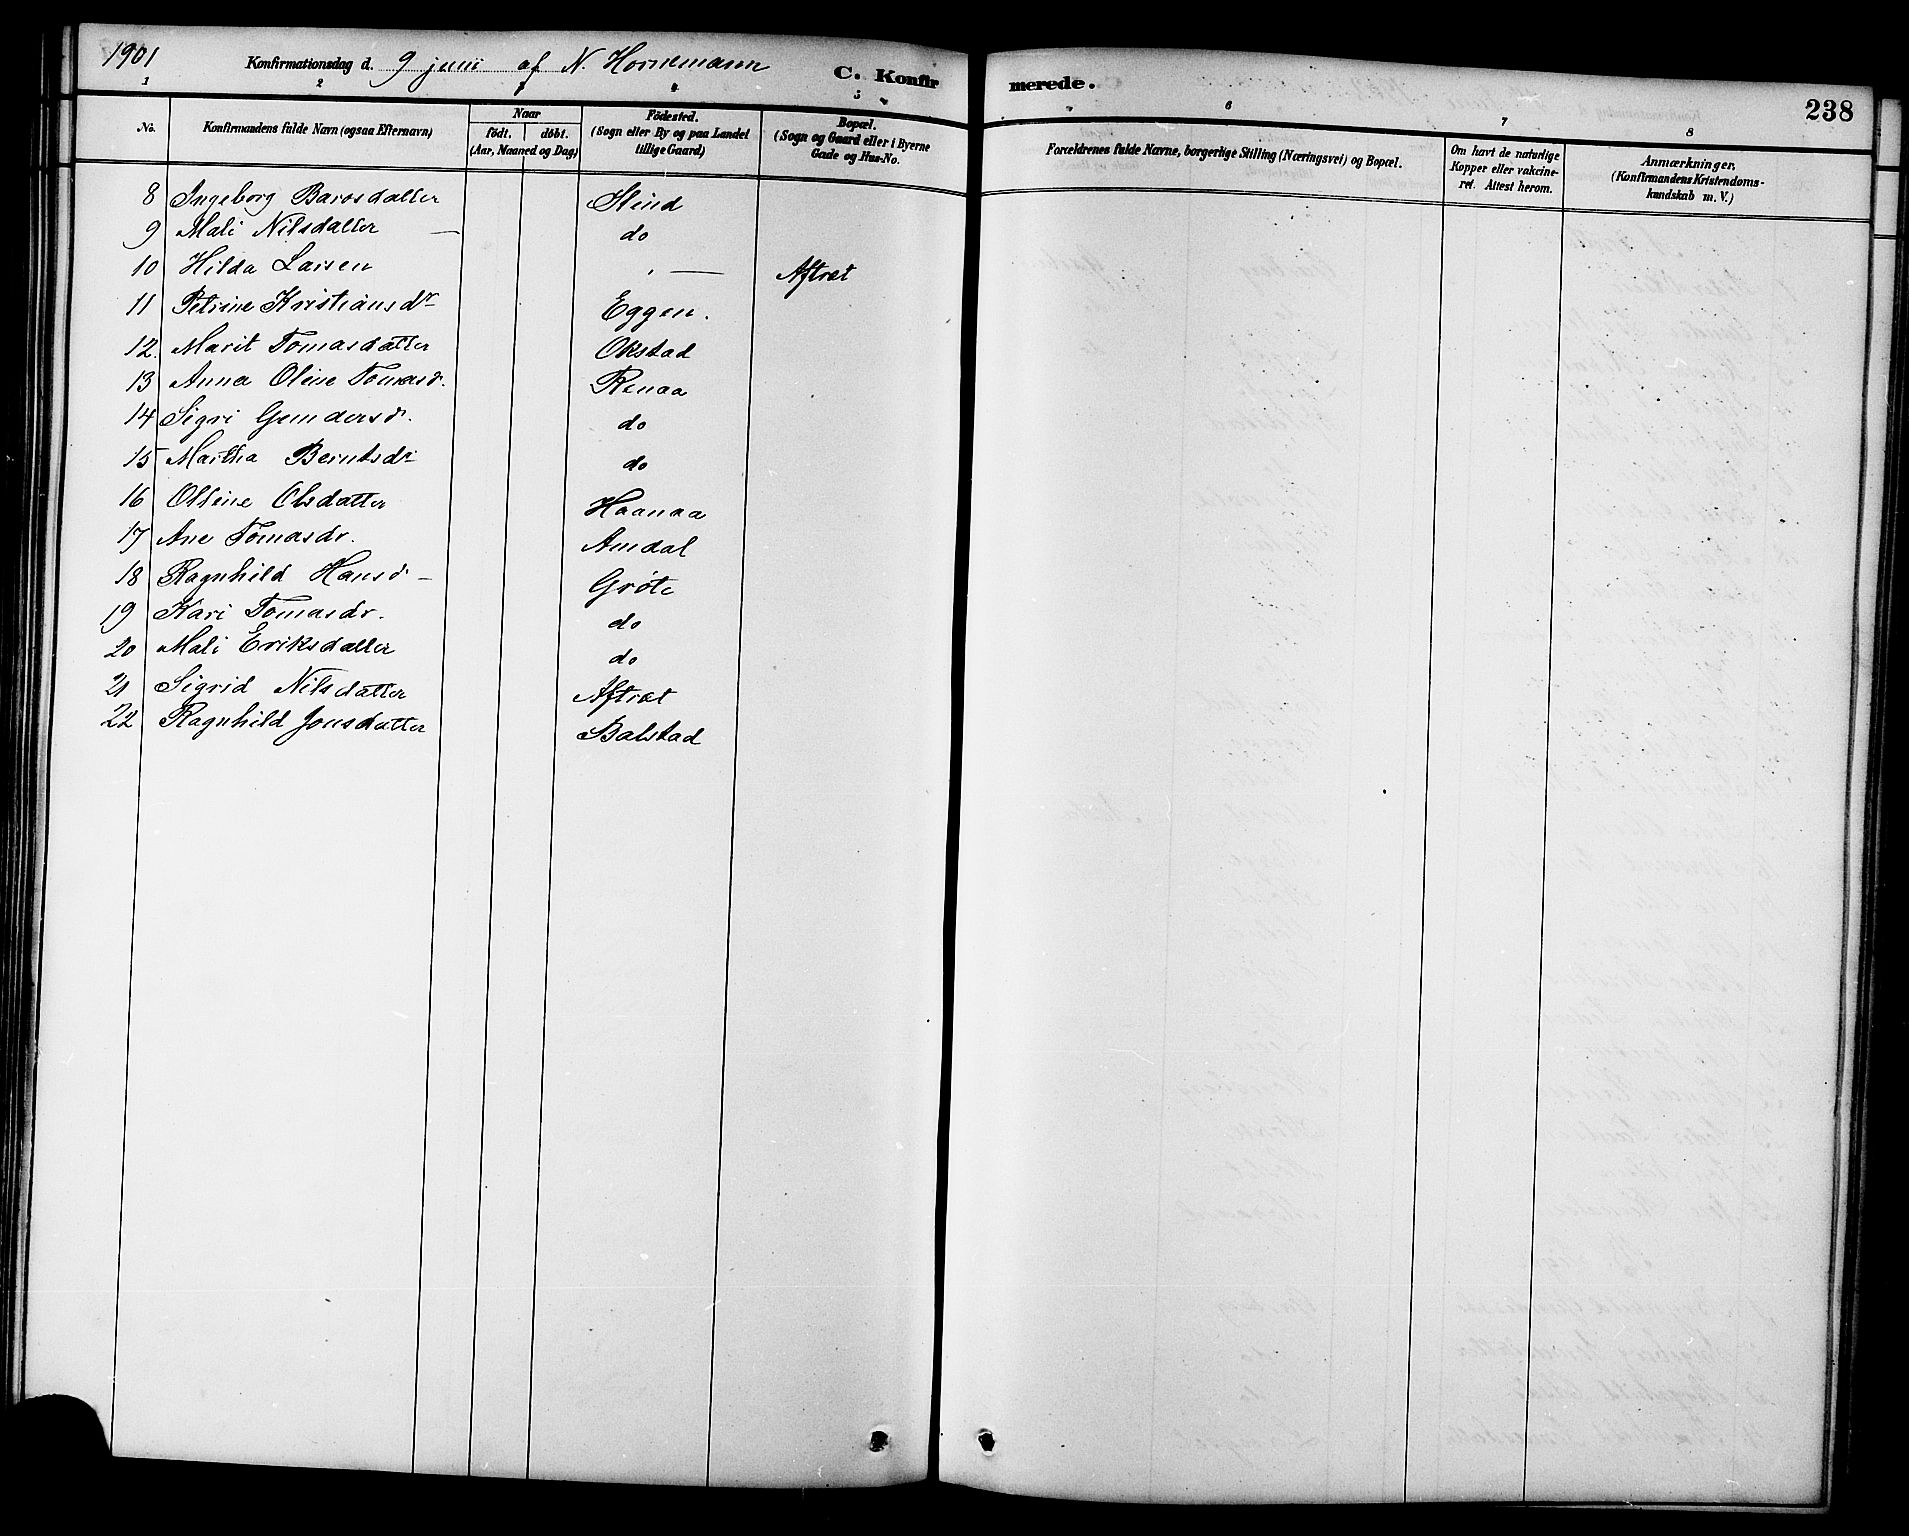 1901 Konfirmationsdag d. 9 juni af N. Hornemann C. Konfirmerede. 238
1 2 3 4 5 6 7 8
No. Konfirmandens fulde Navn (ogsaa Efternavn) Naar født. døbt. (Aar, Maaned og Dag) Födested. (Sogn eller By og paa Landet tillige Gaard) Bopæl. (Sogn og Gaard eller i Byerne Gade og Hus-No. Forældrenes fulde Navne, borgerlige Stilling (Næringsvei) og Bopæl. Om havt de naturlige Kopper eller vakcineret. Attest herom. Anmærkninger. (Konfirmandens Kristendomskundskab m. V.)
8 Ingeborg Barosdatter Stend
9 Mali Nilsdatter — do
10 Hilda Larsen — Aftret
11 Petrine Kristiansdr Eggen.
12. Marit Tomasdatter Okstad
13 Anna Oline Tomasd. Renaa
14 Sigri Gundersd. do
15 Martha Berntsdr do
16 Olline Olsdatter Haanaa
17 Ane Tomasdr. Amdal
18 Ragnhild Hansd — Gröte
19 Kari Tomasdr. do
20 Mali Eriksdatter do
21 Sigrid Nilsdatter Aftret
22 Ragnhild Jonsdatter Balstad